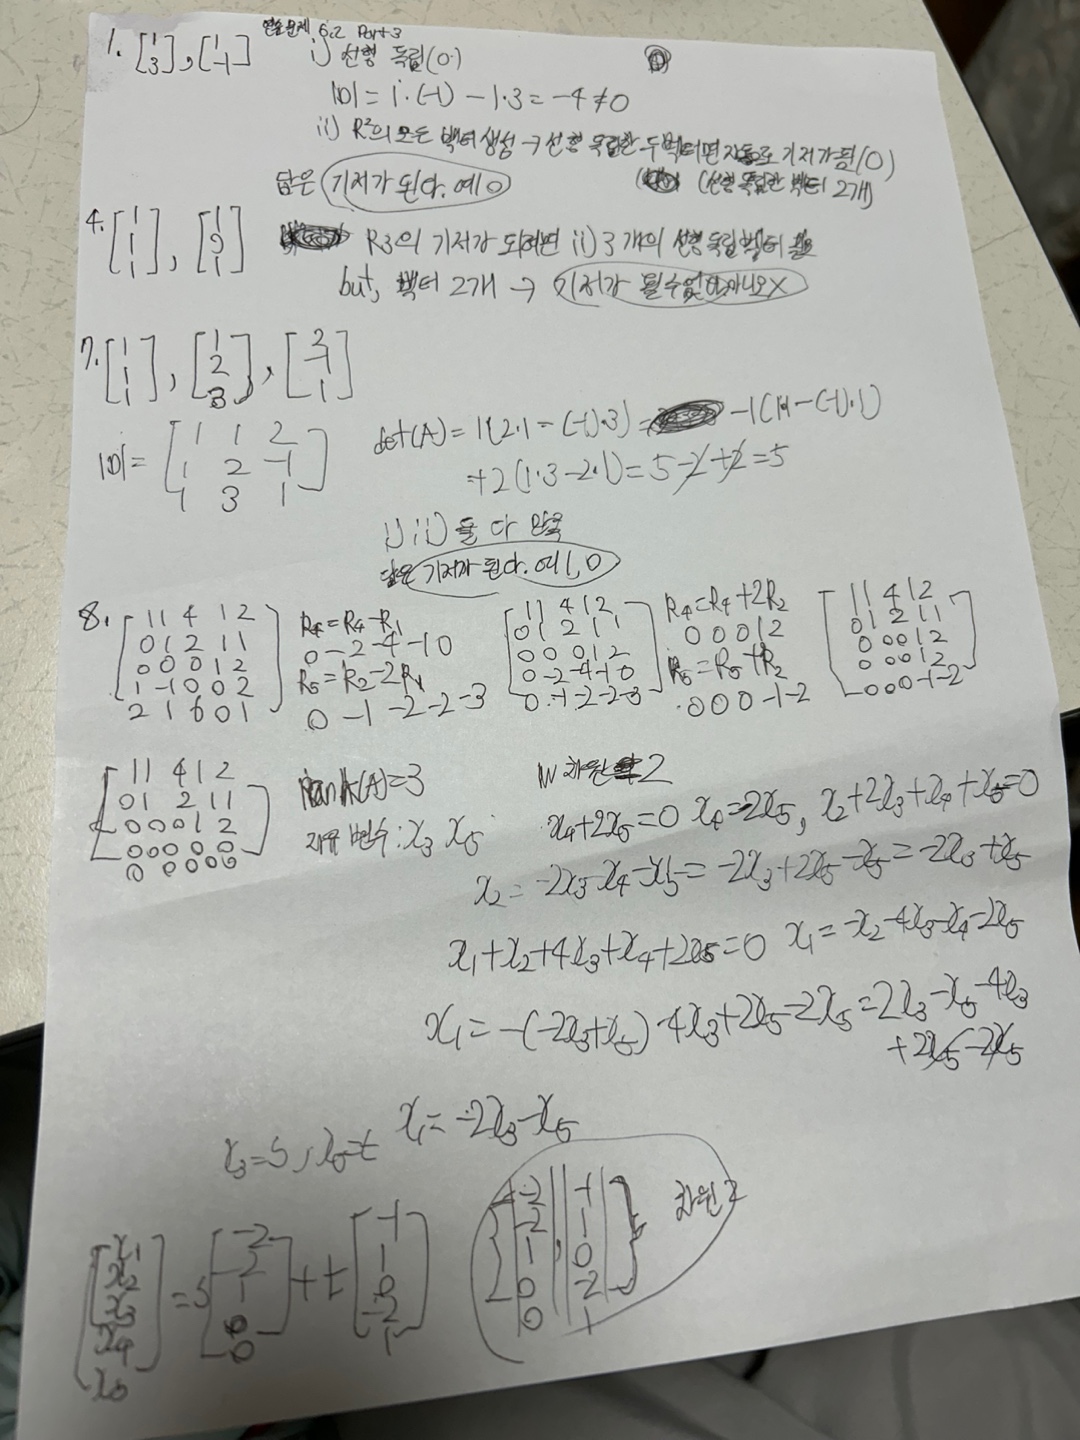 연습문제 6.2 Part 3
1. [1 3], [1 -1] i) 선형 독립(O.)
|D| = 1·(-1) - 1·3 = -4 ≠ 0
ii) R²의 모든 벡터 생성 → 선형 독립한 두 벡터면 자동으로 기저가 됨(O)
(선형 독립한 벡터 2개)
답은 기저가 된다. 예 O
4. [1 1 1], [1 2 1] R3의 기저가 되려면 ii) 3개의 선형 독립 벡터
but, 벡터 2개 → 기저가 될 수 없다 아니오 X
7. [1 1 1], [1 2 3], [2 -1 1]
|D| = [1 1 2
1 2 -1
1 3 1]
det(A) = 1(2·1-(-1)·3) = -1(1·1-(-1)·1)
+2(1·3-2·1) = 5-2+2 = 5
i) ii) 둘 다 만족
답은 기저가 된다. 예, O
8. [1 1 4 1 2
0 1 2 1 1
0 0 0 1 2
1 -1 0 0 2
2 1 6 0 1]
R4=R4-R1
0 -2 -4 -1 0
R5=R2-2R1
0 -1 -2 -2 -3
[1 1 4 1 2
0 1 2 1 1
0 0 0 1 2
0 -2 -4 -1 0
0 -1 -2 -2 -3]
R4=R4+2R2
0 0 0 1 2
R5=R5+R2
0 0 0 -1 -2
[1 1 4 1 2
0 1 2 1 1
0 0 0 1 2
0 0 0 1 2
0 0 0 -1 -2]
[1 1 4 1 2
0 1 2 1 1
0 0 0 1 2
0 0 0 0 0
0 0 0 0 0]
rank(A)=3
자유 변수: x3 x5
W 차원 2
x4+2x5=0 x4=-2x5, x2+2x3+x4+x5=0
x2=-2x3-x4-x5=-2x3+2x5-x5=-2x3+x5
x1+x2+4x3+x4+2x5=0 x1=-x2-4x3-x4-2x5
x1=-(-2x3+x5)-4x3+2x5-2x5=2x3-x5-4x3
+2x5-2x5
x1=-2x3-x5
x3=s, x5=t
[x1 x2 x3 x4 x5] = s[-2 -2 1 0 0] + t[-1 1 0 -2 1]
{[-2 -2 1 0 0], [-1 1 0 -2 1]} 차원 2